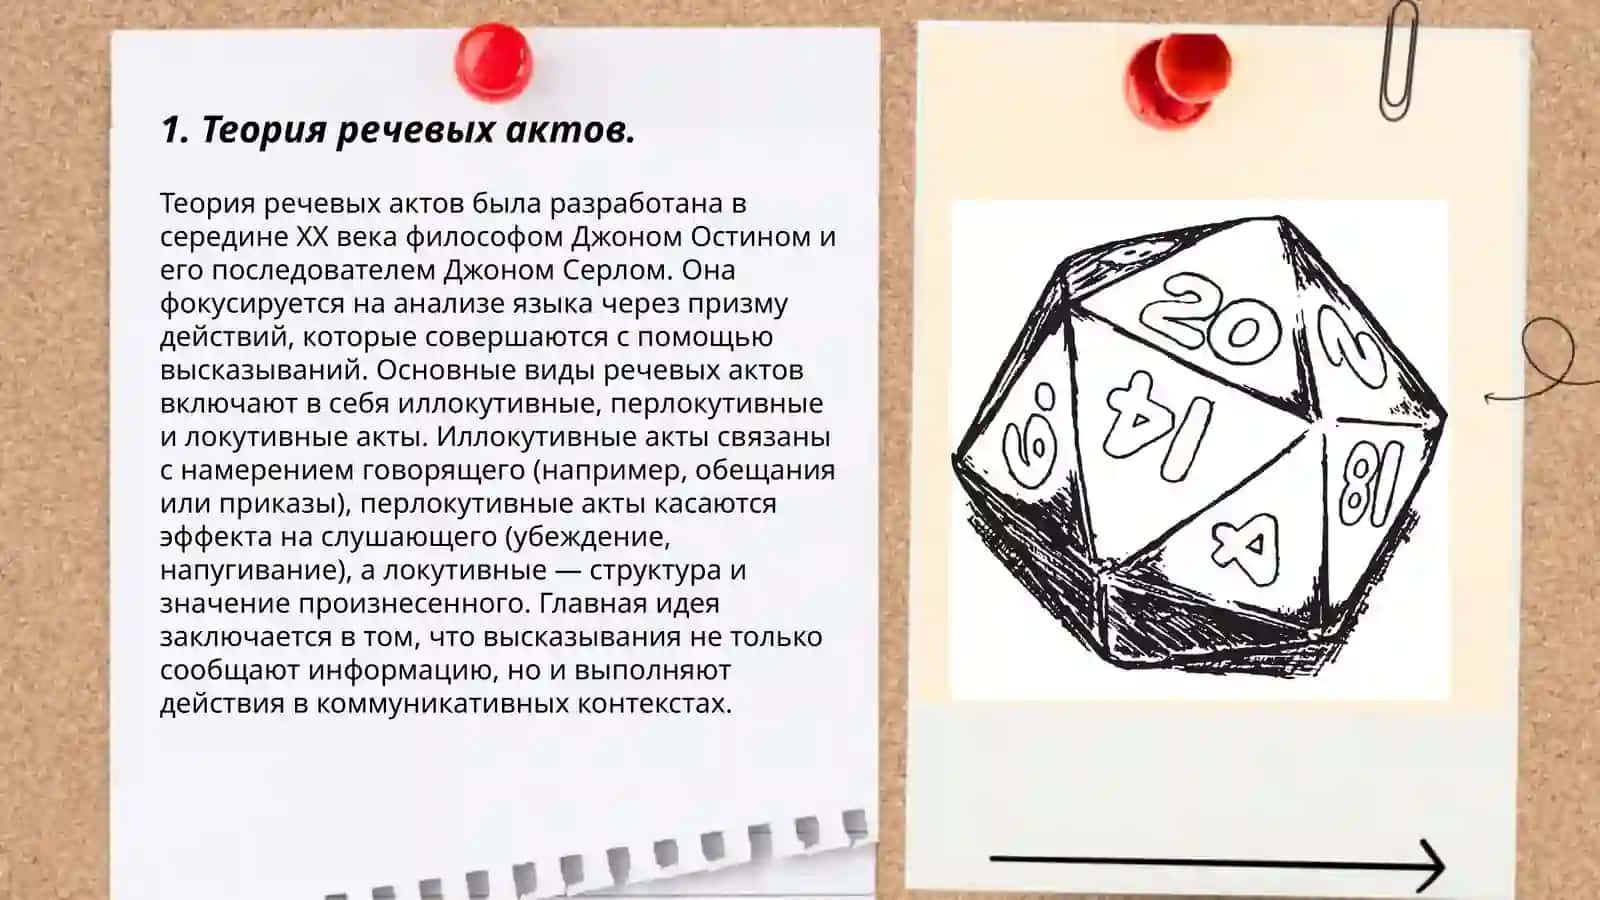 1. Теория речевых актов.
Теория речевых актов была разработана в
середине XX века философом Джоном Остином и
его последователем Джоном Серлом. Она
фокусируется на анализе языка через призму
действий, которые совершаются с помощью
высказываний. Основные виды речевых актов
включают в себя иллокутивные, перлокутивные
и локутивные акты. Иллокутивные акты связаны
с намерением говорящего (например, обещания
или приказы), перлокутивные акты касаются
эффекта на слушающего (убеждение,
напугивание), а локутивные — структура и
значение произнесенного. Главная идея
заключается в том, что высказывания не только
сообщают информацию, но и выполняют
действия в коммуникативных контекстах.
20
2
6.
14
18
4